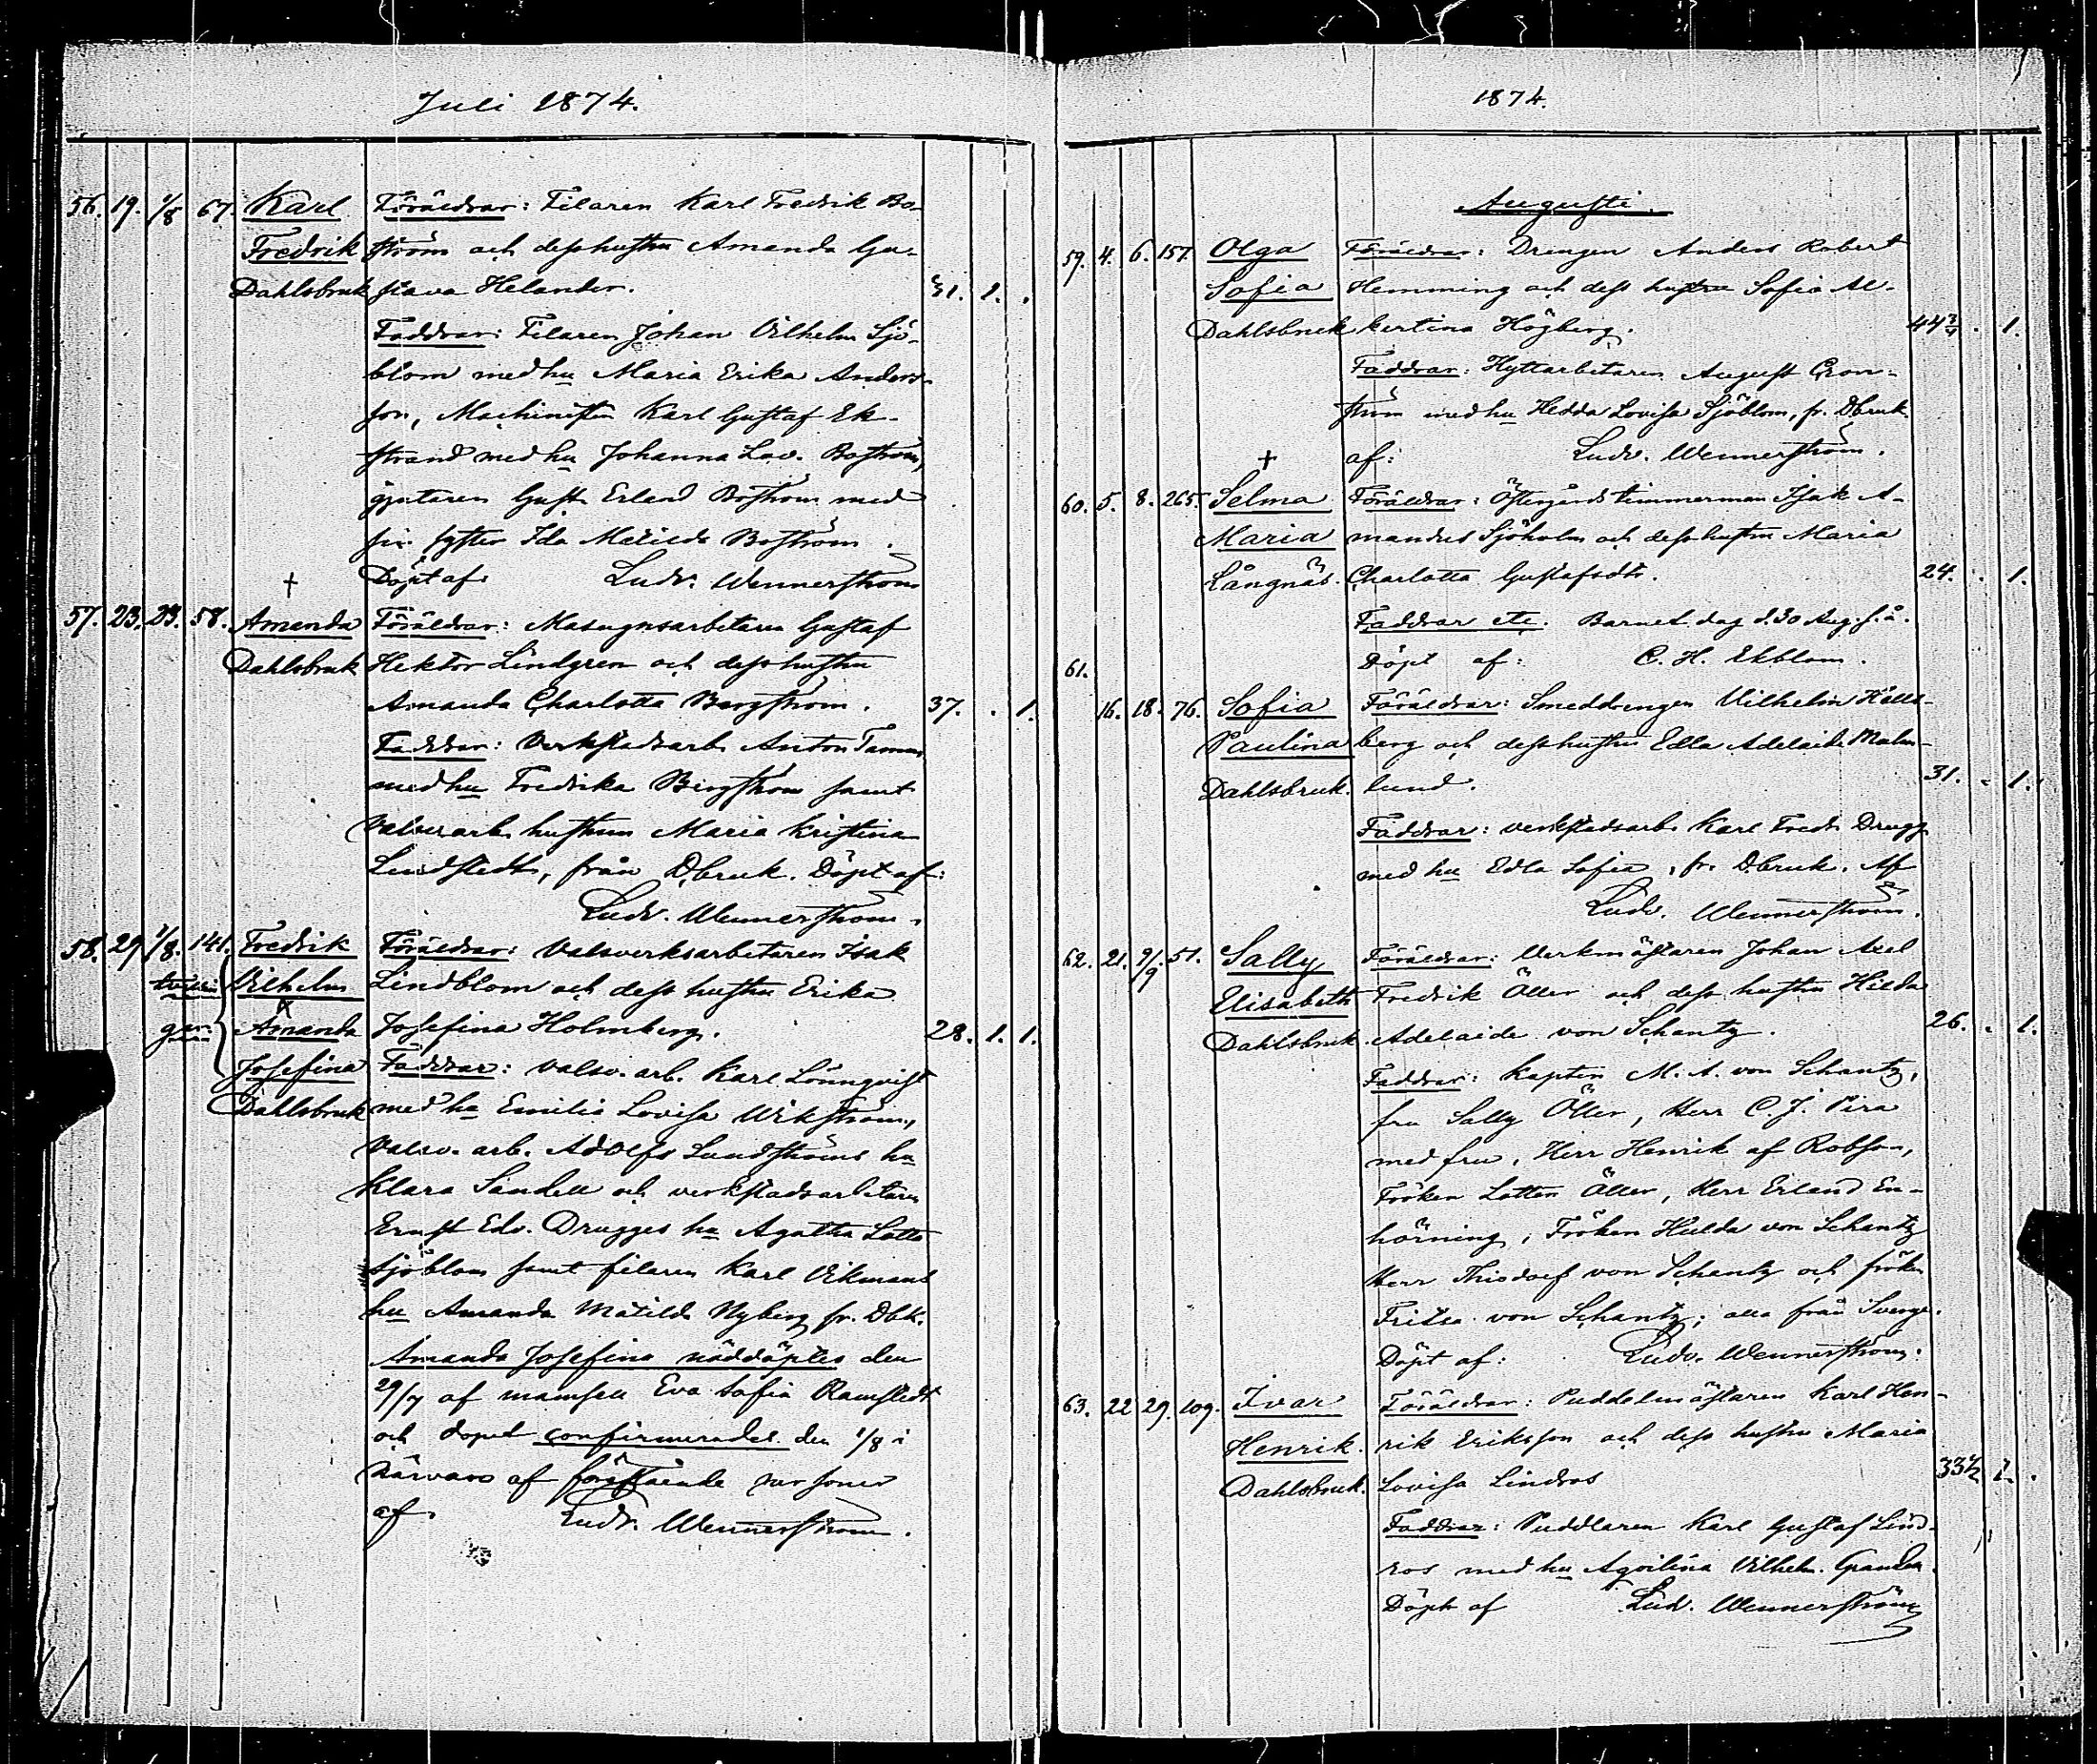 Juli 1874.
56. 19. 1/8 67. Karl Föräldrar: Filaren Karl Fredrik Bo-
Fredrik ström och dess hustru Amanda Gu-
Dahlsbruk stava Helander. 31. 1. .
Faddrar: Filaren Johan Vilhelm Sjö-
blom med hu Maria Erika Anders-
son, Machinisten Karl Gustaf Ek-
strand med hu Johanna Lov. Boström,
gjutaren Gust. Erland Boström med
sin syster Ida Matilda Boström.
† Döpt af: Ludv. Wennerström
57. 23. 23. 58. Amanda Föräldrar: Masugnsarbetaren Gustaf
Dahlsbruk Hektor Lindgren och dess hustru
Amanda Charlotta Bergström. 37. . 1.
Faddrar: Verkstadsarb. Anton
med hu Fredrika Bergström samt
Valsverarb. hustrun Maria Kristina
Lindstedt, från Dbruk. Döpt af:
Ludv. Wennerström.
58. 29 1/8. 141. Fredrik Föräldrar: Valsverksarbetaren Isak
tvillin- Vilhelm Lindblom och dess hustru Erika
gar. Amanda Josefina Holmberg. 28. 1. 1.
Josefina Faddrar: valsv. arb. Karl Lönnqvist
Dahlsbruk med hu Emilia Lovisa Wikström,
Valsv. arb. Adolfs Lundströms hu
Klara Sandell och verkstadsarbetaren
Ernst Edv. Drugges hu Agatha Lotta
Sjöblom samt filaren Karl Vikmans
hu Amanda Matilda Nyberg fr. Dbk.
Amanda Josefina nöddöptes den
29/7 af mamsell Eva Sofia Ramstedt
och dopet confirmerades den 1/8 i
närvaro af förestående personer
af Ludv. Wennerström.
1874.
Augusti.
59. 4. 6. 157. Olga Föräldrar: Drengen Anders Robert
Sofia Hemming och dess hustru Sofia Al-
Dahlsbruk bertina Högberg. 44 3/4 . 1.
Faddrar: Hyttarbetaren August Gron-
ström med hu Hedda Lovisa Sjöblom, fr. Dbruk.
† af: Ludv. Wennerström.
60. 5. 8. 265. Selma Föräldrar: Östergårds timmerman Isak A-
Maria mandus Sjöholm och dess hustru Maria
Långnäs. Charlotta Gustafsdtr. 24. . 1.
Faddrar etc. Barnet dog d. 30 Aug. s. å.
61. Döpt af: C. H. Ekblom.
16. 18. 76. Sofia Föräldrar: Smeddrengen Vilhelm Hälls-
Paulina berg och dess hustru Edla Adelaide Malm-
Dahlsbruk. lund. 31. . 1.
Faddrar: verkstadsarb. Karl Fredr. Drugg
med hu Edla Sofia, fr. Dbruk. Af
Ludv. Wennerström.
62. 21. 9/9. 51. Sally Föräldrar: Verkmästaren Johan Axel
Elisabeth Fredrik Öller och dess hustru Hilda
Dahlsbruk. Adelaide von Schantz. 26. . 1.
Faddrar: Kapten M. A. von Schantz,
fru Sally Öller, Herr C. J. Pira
med fru, Herr Henrik af Robson,
Fröken Lotten Öller, Herr Erland En-
hörning, Fröken Hulda von Schantz
Herr Thiodolf von Schantz och fröken
Fritsa von Schantz; alla från Sverge.
Döpt af: Ludv. Wennerström.
63. 22 29. 109. Ivar Föräldrar: Puddelmästaren Karl Hen-
Henrik. rik Eriksson och dess hustru Maria
Dahlsbruk. Lovisa Lindros 33 1/2 1. .
Faddrar: Puddlaren Karl Gustaf Lind-
ros med hu Aqvilina Vilhelm.
Döpt af Ludv. Wennerström